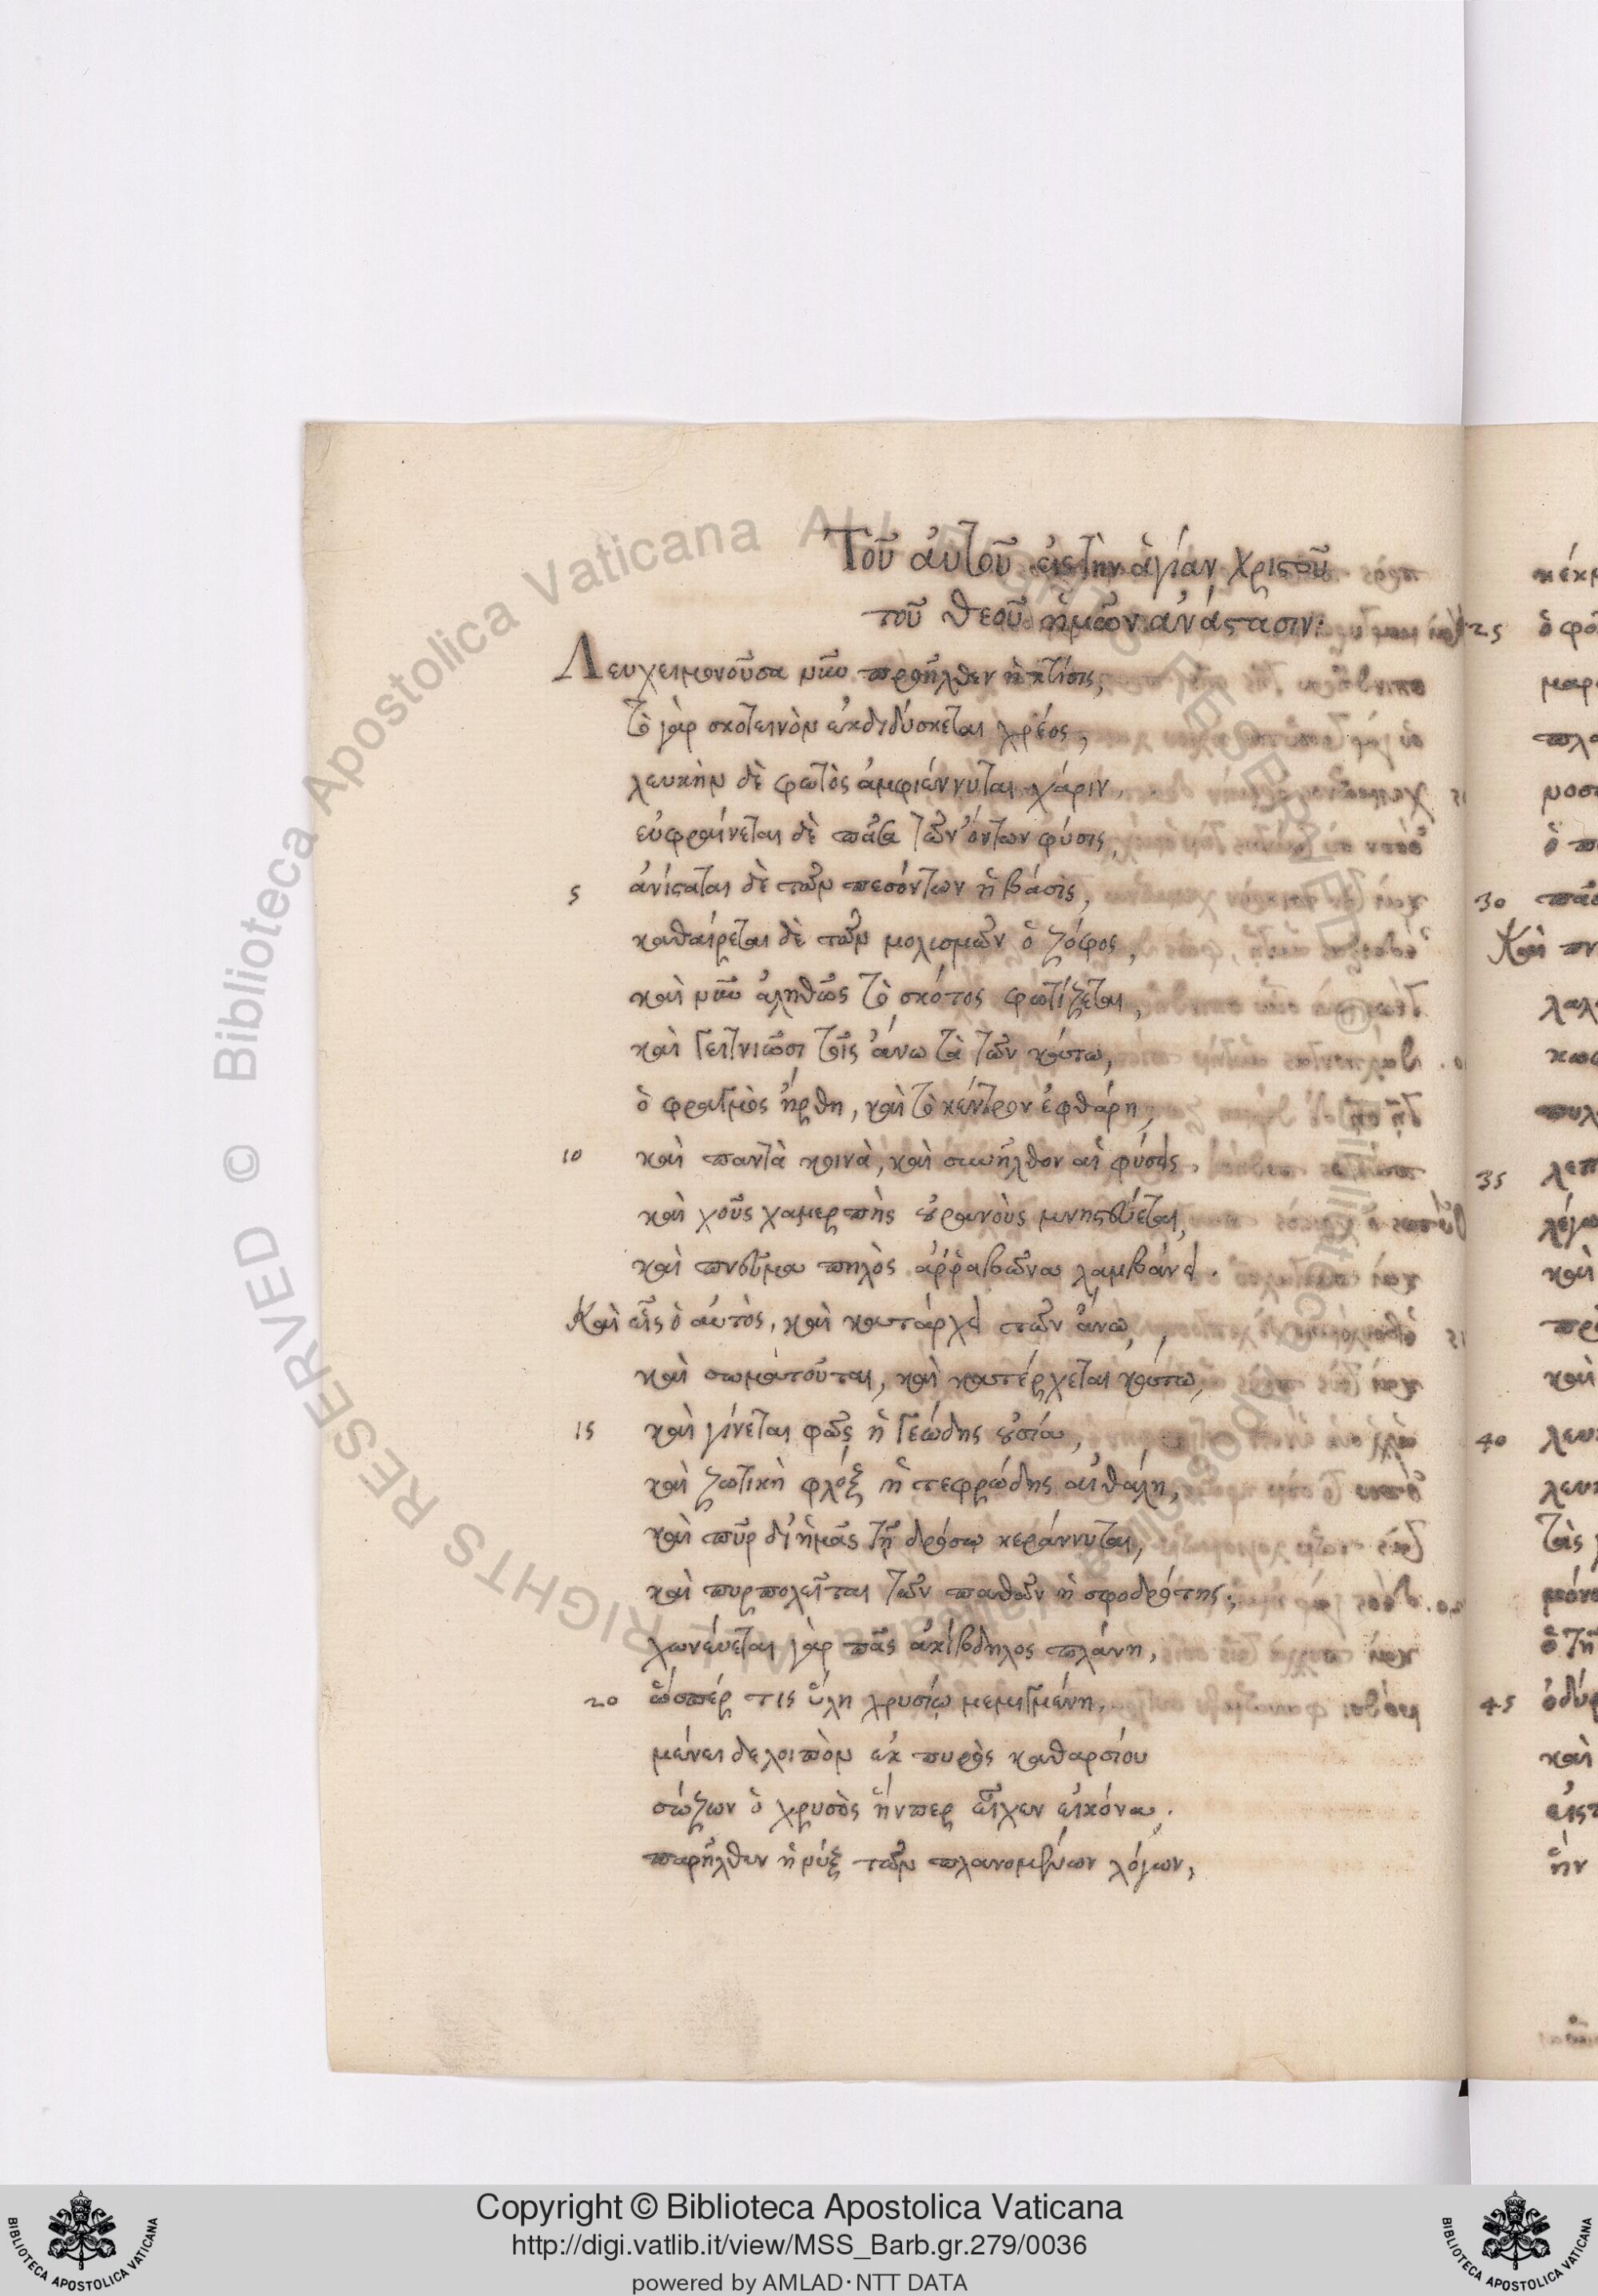 Τοῦ αὐτοῦ εἰς τὴν ἁγίαν χριστοῦ
τοῦ θεοῦ ἡμῶν ἀνάστασιν:
Λευχειμονοῦσα νῦν προῆλθεν ἡ κτίσις,
τὸ γὰρ σκοτεινὸν ἐκδιδύσκεται χρέος,
λευκὴν δὲ φωτὸς ἀμφιέννυται χάριν,
εὐφραίνεται δὲ πᾶσα τῶν ὄντων φύσις,
5 ἀνίσταται δὲ τῶν πεσόντων ἡ βάσις,
καθαίρεται δὲ τῶν μολισμῶν ὁ ζόφος,
καὶ νῦν ἀληθῶς τὸ σκότος φωτίζεται,
καὶ γειτνιῶσι τοῖς ἄνω τὰ τῶν κάτω,
ὁ φραγμὸς ἤρθη, καὶ τὸ κέντρον ἐφθάρη,
10 καὶ παντὰ κοινὰ, καὶ συνῆλθον αἱ φύσεις,
καὶ χοῦς χαμερπὴς οὐρανοὺς μνηστεύεται,
καὶ πνεῦμα πηλὸς ἀῤῥαβῶνα λαμβάνει.
Καὶ εἷς ὁ αὐτὸς, καὶ κατάρχει τῶν ἄνω,
καὶ σωματοῦται, καὶ κατέρχεται κάτω,
15 καὶ γίνεται φῶς ἡ γεώδης οὐσία,
καὶ ζωτικὴ φλόξ ἡ τεφρώδης αἰθάλη,
καὶ πῦρ δι' ἡμᾶς τῇ δρόσῳ κεράννυται,
καὶ πυρπολεῖται τῶν παθῶν ἡ σφοδρότης,
χωνεύεται γὰρ πᾶς ἀκίβδηλος πλάνη,
20 ὥσπέρ τις ὕλη χρυσίῳ μεμιγμένη,
μένει δε λοιπὸν ἐκ πυρὸς καθαρσίου
σώζων ὁ χρυσὸς ἥνπερ εἶχεν εἰκόνα.
παρῆλθεν ἡ νύξ τῶν πλανομένων λόγων,
25
30
35
40
45
Copyright © Biblioteca Apostolica Vaticana
http://digi.vatlib.it/view/MSS_Barb.gr.279/0036
powered by AMLAD·NTT DATA